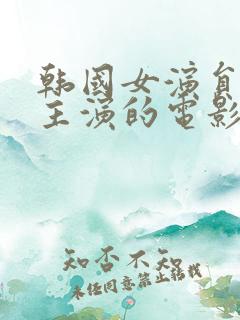 韩国女演员
主演的电影
知否不知
未经同意禁止转载